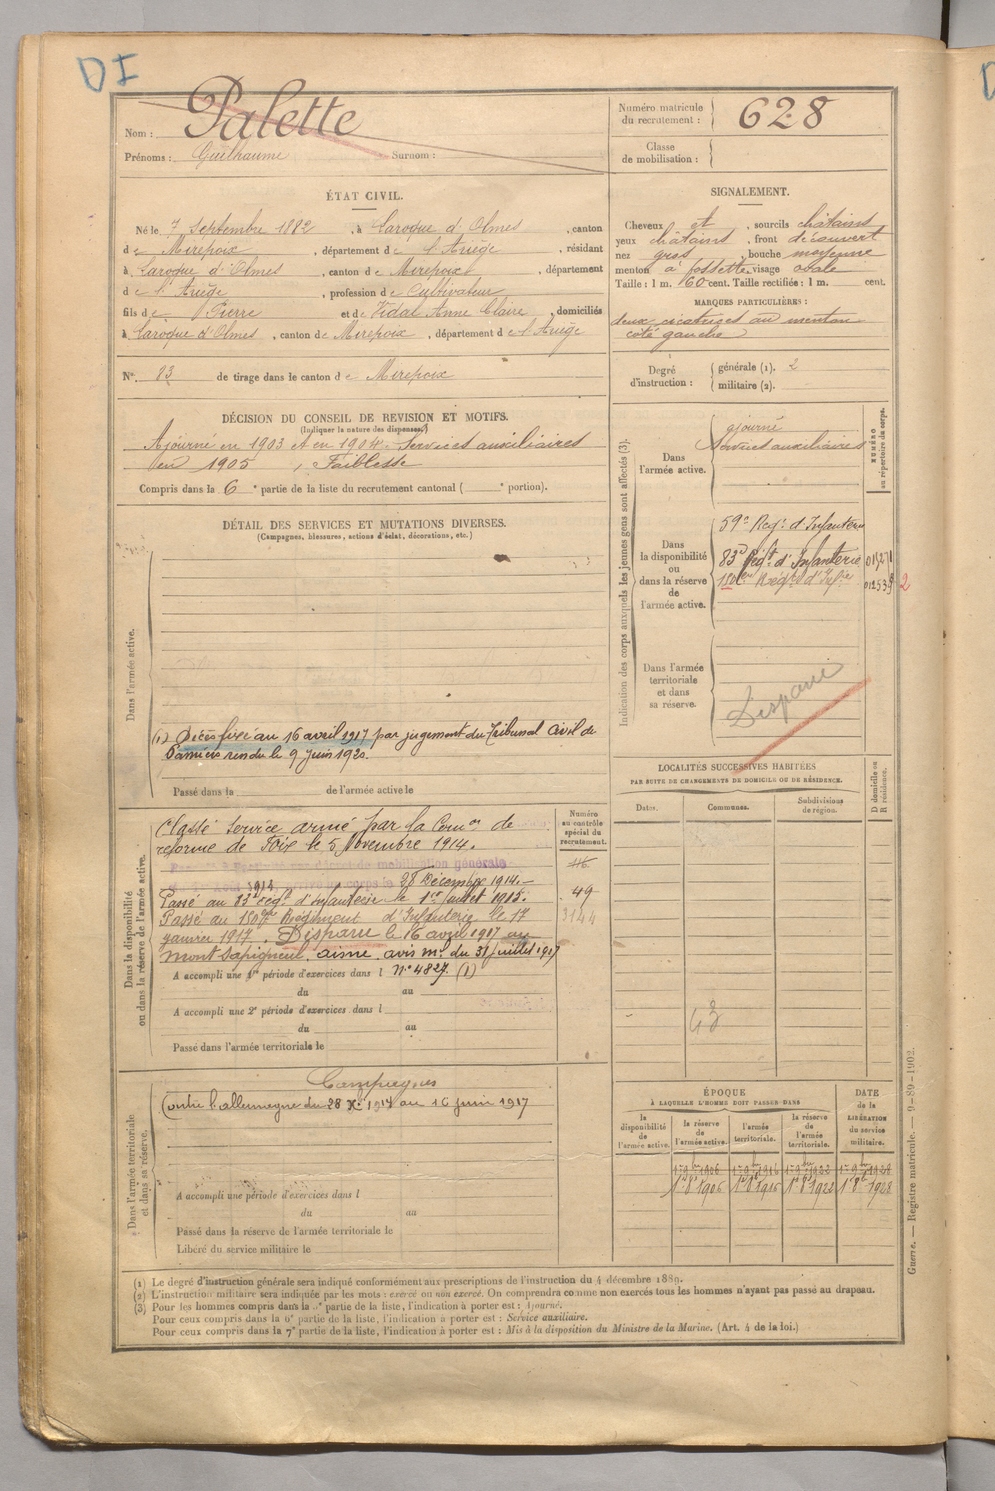 DI
Nom : Palette
Prénoms : Guilhaume Surnom :
Numéro matricule du recrutement : 628
Classe de mobilisation :
ÉTAT CIVIL.
Né le 7 Septembre 1882, à Laroque d'Olmes, canton
de Mirepoix, département de l'Ariège, résidant
à Laroque d'Olmes, canton de Mirepoix, département
de l'Ariège, profession de Cultivateur
fils de Pierre et de Vidal Anne Claire, domiciliés
à Laroque d'Olmes, canton de Mirepoix, département de l'Ariège
N° 83 de tirage dans le canton de Mirepoix
SIGNALEMENT.
Cheveux et, sourcils châtains
yeux châtains, front découvert
nez gros, bouche moyenne
menton à fossette, visage ovale
Taille : 1 m. 60 cent. Taille rectifiée : 1 m. cent.
MARQUES PARTICULIÈRES :
deux cicatrices au menton
côté gauche
Degré d'instruction : générale (1). 2
militaire (2).
DÉCISION DU CONSEIL DE REVISION ET MOTIFS.
(Indiquer la nature des dispenses.)
Ajourné en 1903 et en 1904. Services auxiliaires
en 1905, Faiblesse
Compris dans la 6e partie de la liste du recrutement cantonal ( e portion).
DÉTAIL DES SERVICES ET MUTATIONS DIVERSES.
(Campagnes, blessures, actions d'éclat, décorations, etc.)
Dans l'armée active.
(1) Décès fixé au 16 avril 1917 par jugement du Tribunal Civil de
Pamiers rendu le 9 Juin 1920.
Passé dans la de l'armée active le
Indication des corps auxquels les jeunes gens sont affectés (3).
NUMÉRO au répertoire du corps.
Dans l'armée active.
ajourné
Services auxiliaires
Dans la disponibilité ou dans la réserve de l'armée active.
59e Regt d'Infanterie
83e Regt d'Infanterie 013271
150eme Regt d'Infie 012539 2
Dans l'armée territoriale et dans sa réserve.
Disparu
LOCALITÉS SUCCESSIVES HABITÉES
PAR SUITE DE CHANGEMENTS DE DOMICILE OU DE RÉSIDENCE.
Dates. Communes. Subdivisions de région. D domicile ou R résidence.
43
Dans la disponibilité ou dans la réserve de l'armée active.
Numéro au contrôle spécial du recrutement.
Classé Service armé par la Comon de
réforme de Foix le 5 Novembre 1914.
décret de mobilisation générale
1914, arrivé au corps le 28 Décembre 1914.
Passé au 83e régt d'Infanterie le 1er Juillet 1915.
Passé au 150e Régiment d'Infanterie le 17
janvier 1917. Disparu le 16 avril 1917 au
mont Sapigneul, aisne, avis ml du 31 juillet 1917
49
3144
A accompli une 1re période d'exercices dans l N° 4827 (1)
du au
A accompli une 2e période d'exercices dans l
du au
Passé dans l'armée territoriale le
Dans l'armée territoriale et dans sa réserve.
Campagnes
Contre l'allemagne du 28 Xbre 1914 au 16 juin 1917
A accompli une période d'exercices dans l
du au
Passé dans la réserve de l'armée territoriale le
Libéré du service militaire le
ÉPOQUE
À LAQUELLE L'HOMME DOIT PASSER DANS
la disponibilité de l'armée active. la réserve de l'armée active. l'armée territoriale. la réserve de l'armée territoriale.
DATE de la LIBÉRATION du service militaire.
1er 9bre 1906 1er 9bre 1916 1er 9bre 1922 1er 9bre 1928
1er 8bre 1906 1er 8bre 1916 1er 8bre 1922 1er 8bre 1928
(1) Le degré d'instruction générale sera indiqué conformément aux prescriptions de l'instruction du 4 décembre 1889.
(2) L'instruction militaire sera indiquée par les mots : exercé ou non exercé. On comprendra comme non exercés tous les hommes n'ayant pas passé au drapeau.
(3) Pour les hommes compris dans la 5e partie de la liste, l'indication à porter est : Ajourné.
Pour ceux compris dans la 6e partie de la liste, l'indication à porter est : Service auxiliaire.
Pour ceux compris dans la 7e partie de la liste, l'indication à porter est : Mis à la disposition du Ministre de la Marine. (Art. 4 de la loi.)
Guerre. — Registre matricule. — 9-89-1902.